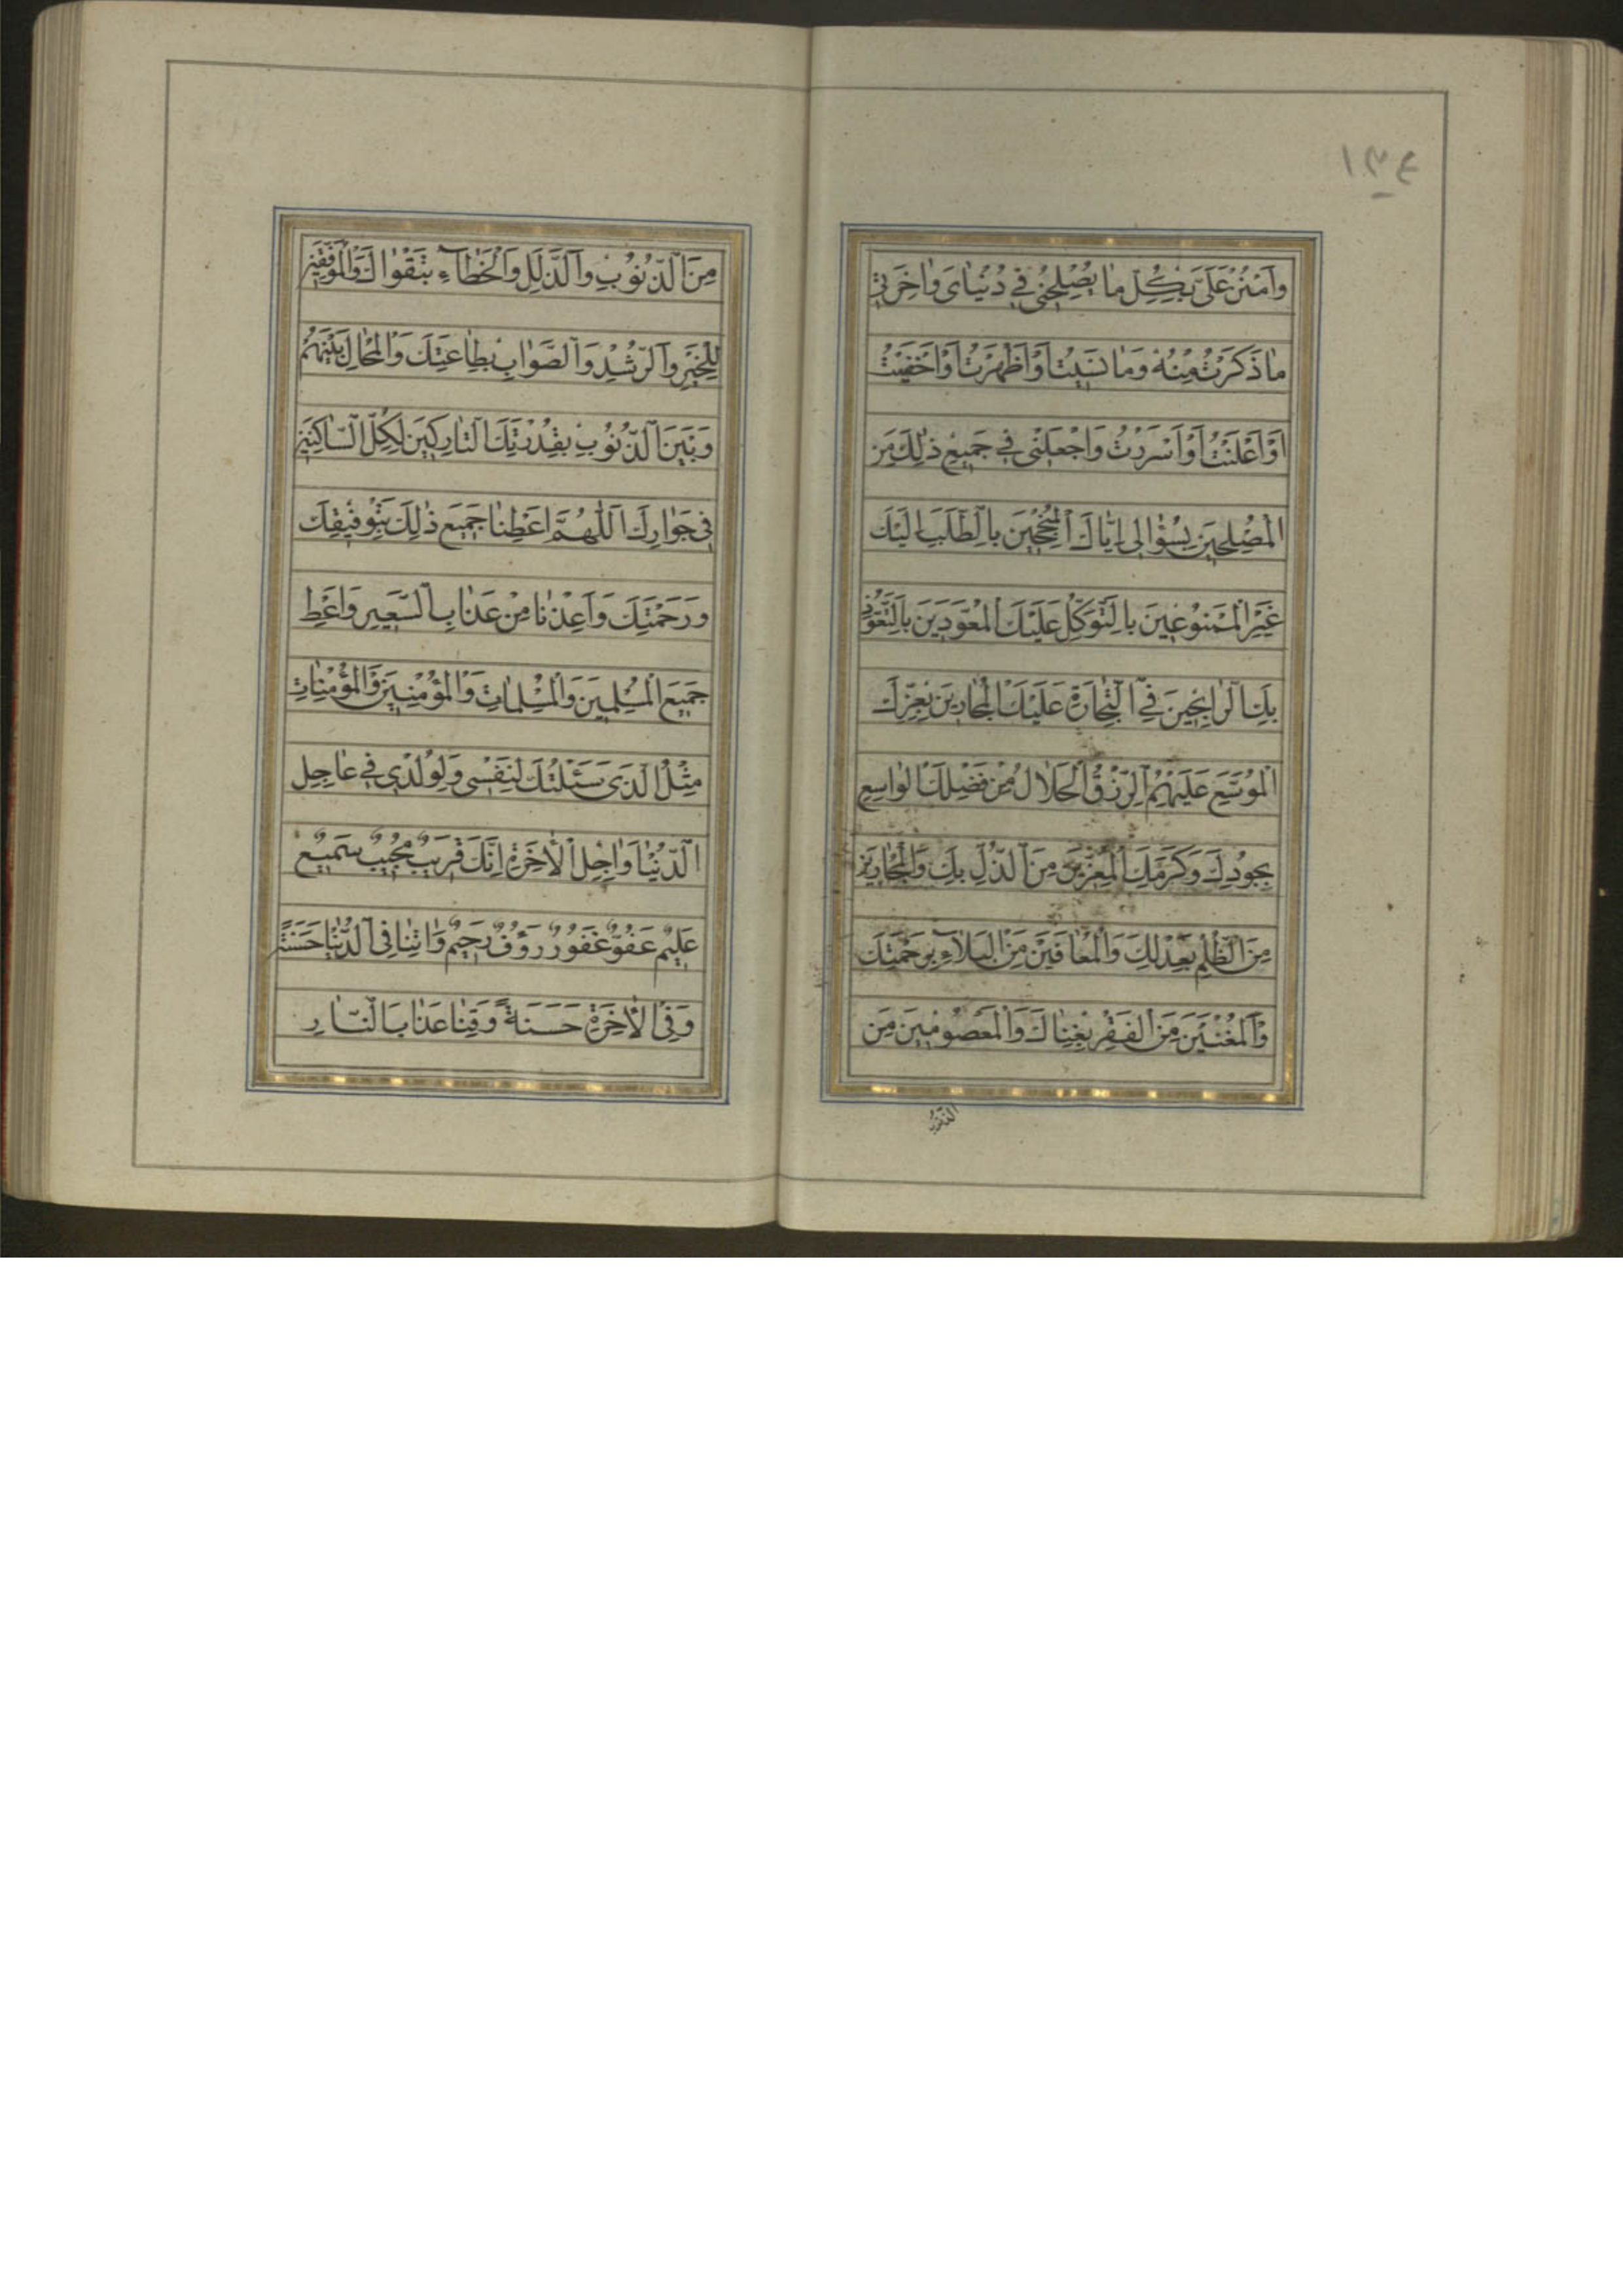 ١٣٤
وَامْنُنْ عَلَىَّ بِكُلِّ مٰا يُصْلِحُنى فِى دُنْيٰاىَ وَاٰخِرَتى
مٰا ذَكَرْتُ مِنْهُ وَمٰا نَسيتُ اَوْ اَظْهَرْتُ اَوْ اَخْفَيْتُ
اَوْ اَعْلَنْتُ اَوْ اَسْرَرْتُ وَاجْعَلْنى فى جَميعِ ذٰلِكَ مِنَ
الْمُصْلِحينَ بِسُؤٰالى اِيّٰاكَ الْمُنْجِحينَ بِالطَّلَبِ اِلَيْكَ
غَيْرِ الْمَمْنُوعينَ بِالتَّوَكُّلِ عَلَيْكَ الْمُعَوَّدينَ بِالتَّعَوُّذِ
بِكَ الرّٰابِحينَ فِى التِّجٰارَةِ عَلَيْكَ الْمُجٰارينَ بِعِزِّكَ
الْمُوَسَّعِ عَلَيْهِمُ الرِّزْقُ الْحَلاٰلُ مِنْ فَضْلِكَ الْوٰاسِعِ
بِجُودِكَ وَكَرَمِكَ الْمُعَزّينَ مِنَ الذُّلِّ بِكَ وَالْمُجٰارينَ
مِنَ الظُّلْمِ بِعَدْلِكَ وَالْمُعٰافَيْنَ مِنَ الْبَلاٰءِ بِرَحْمَتِكَ
وَالْمُغْنَيْنَ مِنَ الْفَقْرِ بِغِنٰاكَ وَالْمَعْصُومينَ مِنَ
مِنَ الذُّنُوبِ وَالذَّلَلِ وَالْخَطٰآءِ بِتَقْوٰاكَ وَالْمُوَفَّقينَ
لِلْخَيْرِ وَالرُّشْدِ وَالصَّوٰابِ بِطٰاعَتِكَ وَالْمُحٰالِ بَيْنَهُمْ
وَبَيْنَ الذُّنُوبِ بِقُدْرَتِكَ التّٰارِكينَ لِكُلِّ السّٰاكِنينَ
فى جِوٰارِكَ اَللّٰهُمَّ اَعْطِنٰا جَميعَ ذٰلِكَ بِتَوْفيقِكَ
وَرَحْمَتِكَ وَاَعِذْنٰا مِنْ عَذٰابِ السَّعيرِ وَاَعْطِ
جَميعَ الْمُسْلِمينَ وَالْمُسْلِمٰاتِ وَالْمُؤْمِنينَ وَالْمُؤْمِنٰاتِ
مِثْلَ الَّذى سَئَلْتُكَ لِنَفْسى وَلِوُلْدى فى عٰاجِلِ
الدُّنْيٰا وَاٰجِلِ الْاٰخِرَةِ اِنَّكَ قَريبٌ مُجيبٌ سَميعٌ
عَليمٌ عَفُوٌّ غَفُورٌ رَؤُفٌ رَحيمٌ وَاٰتِنٰا فِى الدُّنْيٰا حَسَنَةً
وَفِى الْاٰخِرَةِ حَسَنَةً وَقِنٰا عَذٰابَ النّٰارِ